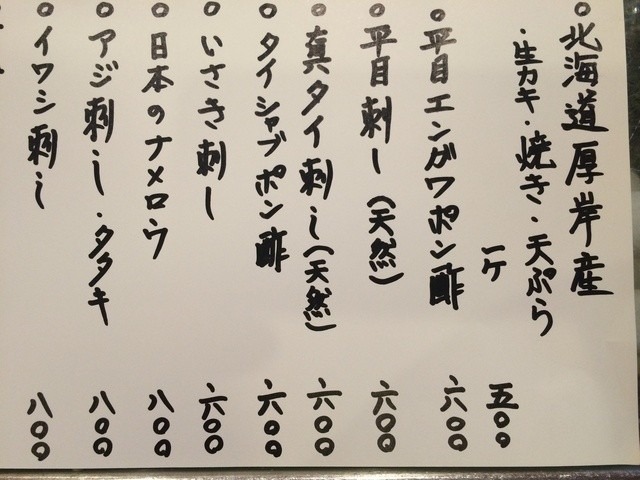 ○北海道厚岸産
・生カキ・焼き・天ぷら
一ケ 五〇〇
○平目エンガワポン酢 六〇〇
○平目刺し(天然) 六〇〇
○真タイ刺し(天然) 六〇〇
○タイシャブポン酢 六〇〇
○いさき刺し 六〇〇
○日本のナメロウ 八〇〇
○アジ刺し・タタキ 八〇〇
○イワシ刺し 八〇〇